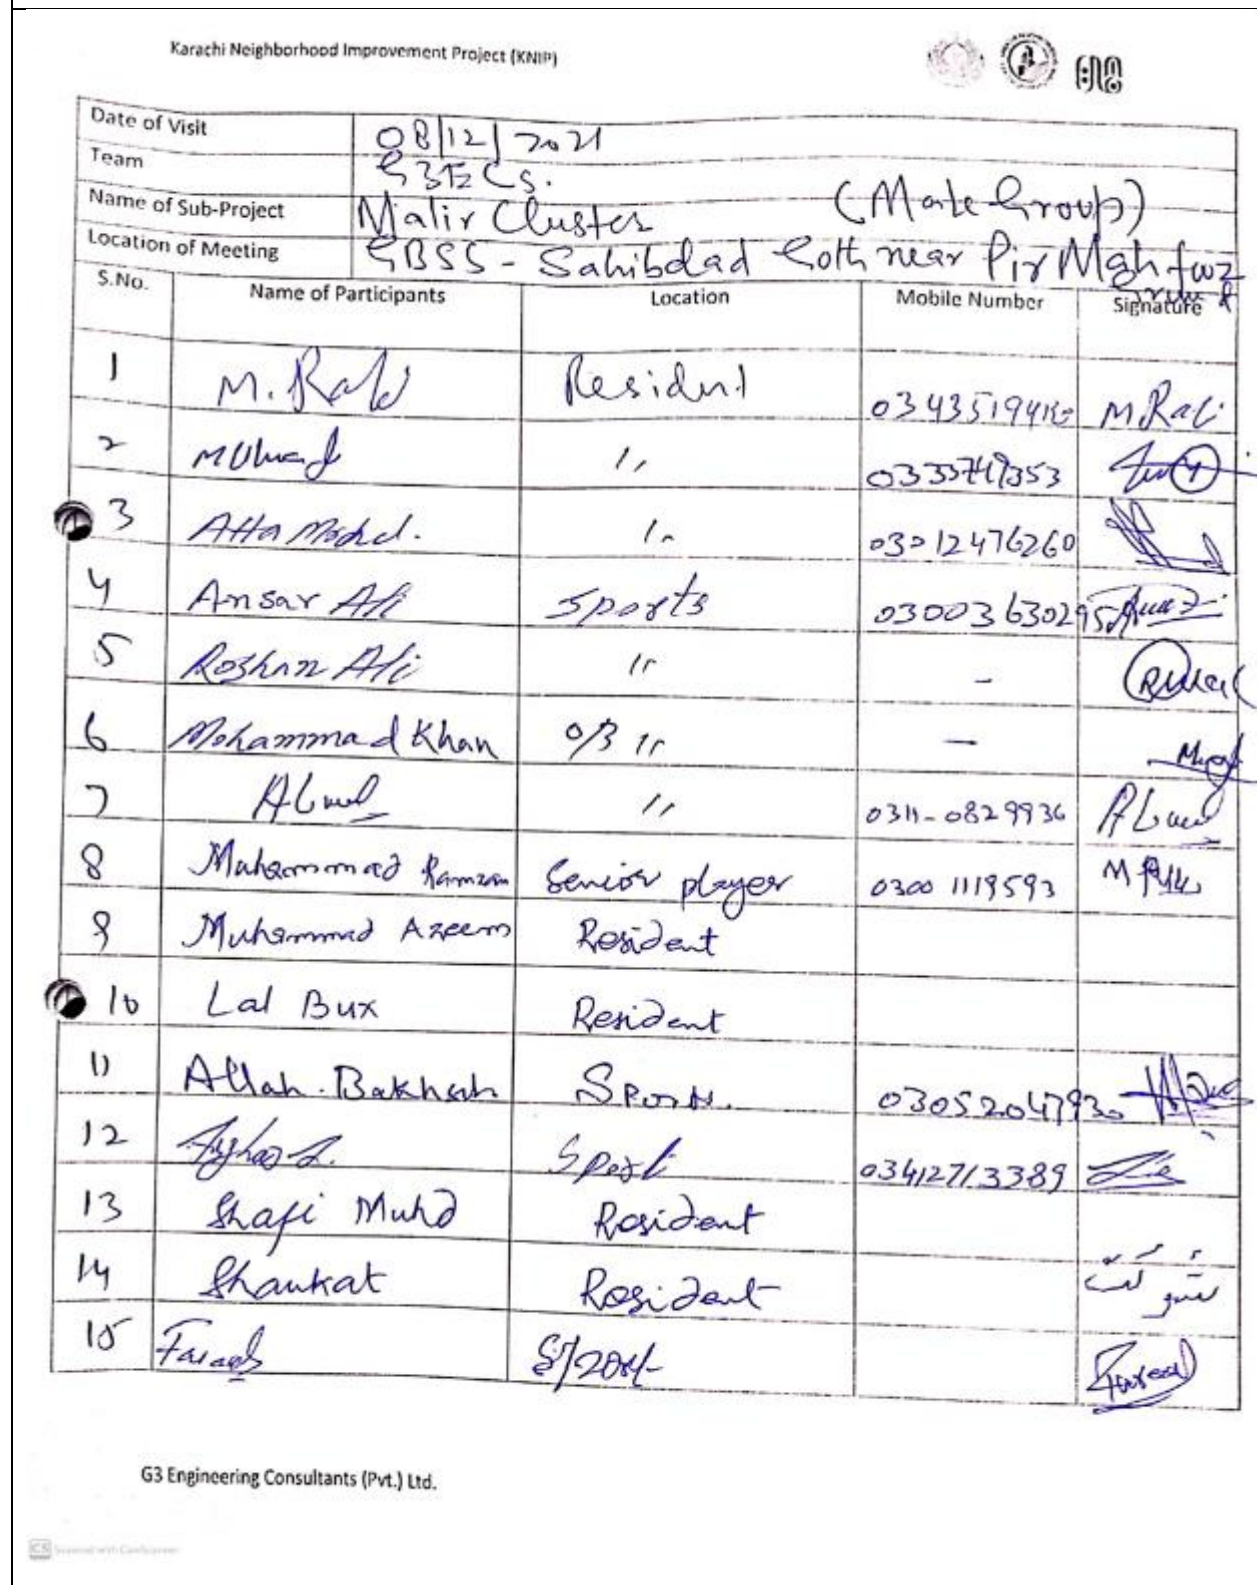 Karachi Neighborhood Improvement Project (KNIP)
Date of Visit 08/12/2021
Team G3ECs.
Name of Sub-Project Malir Cluster (Male Group)
Location of Meeting GBSS - Sahibdad Goth near Pir Mahfooz
S.No. Name of Participants Location Mobile Number Signature
1 M. Rafi Resident M Rafi
2 〃
3 Atta Mohd. 〃 03012476260
4 Ansar Ali Sports 03003630295
5 Roshan Ali 〃 -
6 Mohammad Khan 〃 -
7 〃 0311-0829936
8 Muhammad Ramzan Senior player 0300 1119593
9 Muhammad Azeem Resident
10 Lal Bux Resident
11 Allah Bakhsh Sports. 03052047930
12 Sport 03412713389
13 Shafi Muhd Resident
14 Shaukat Resident شوکت
15
G3 Engineering Consultants (Pvt.) Ltd.
CS Scanned with CamScanner